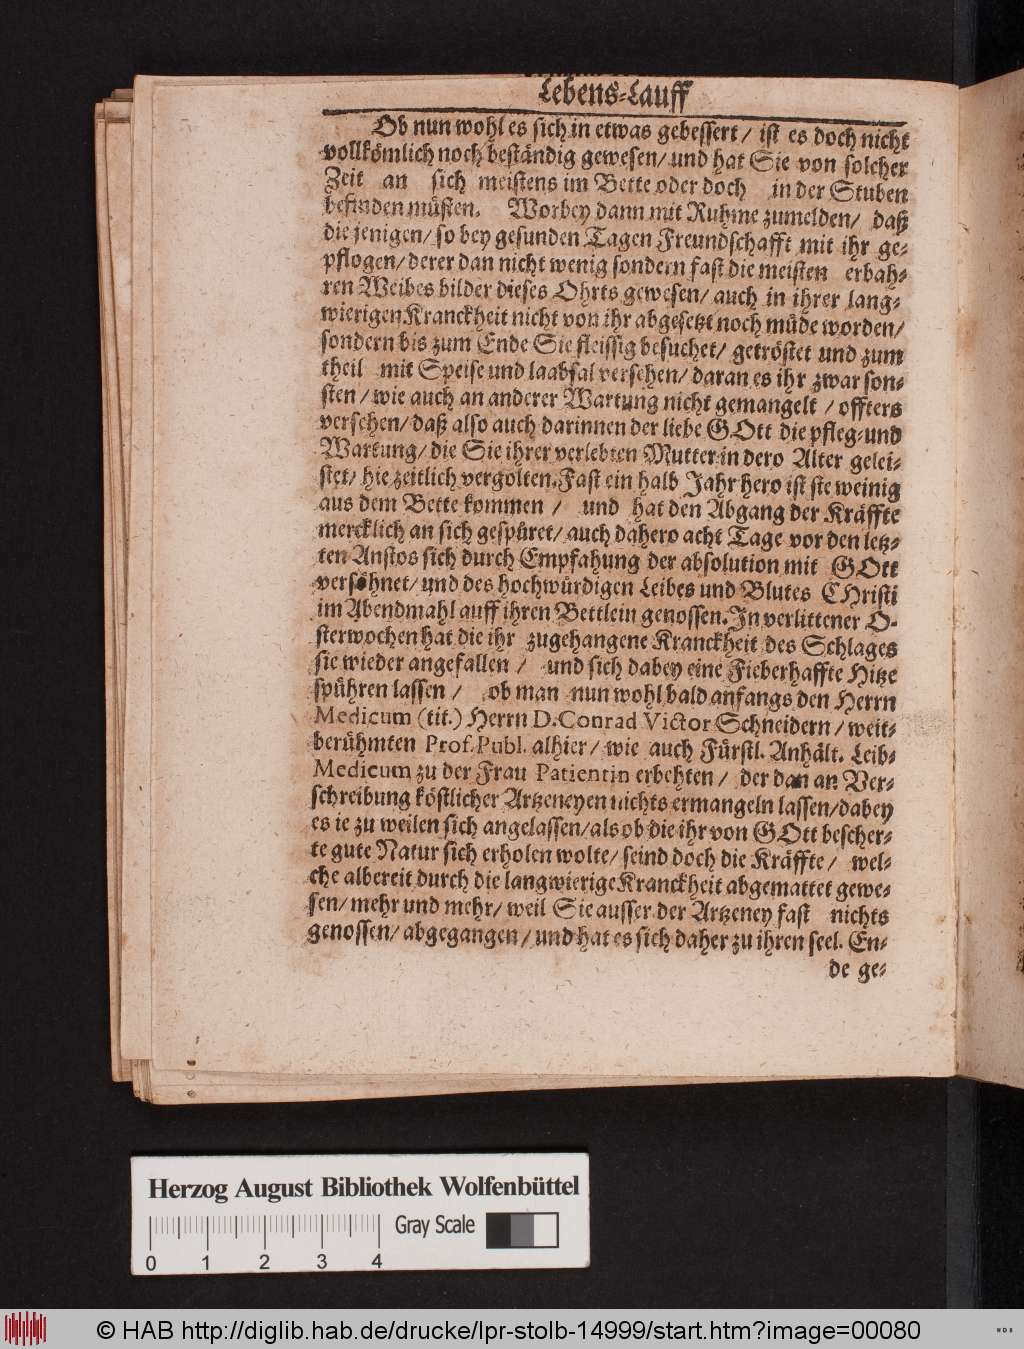 Lebens-Lauff
Ob nun wohl es sich in etwas gebessert / ist es doch nicht
vollkömlich noch beständig gewesen / und hat Sie von solcher
Zeit an sich meistens im Bette oder doch in der Stuben
befinden müsten. Worbey dann mit Ruhme zumelden / daß
die jenigen / so bey gesunden Tagen Freundschafft mit ihr ge-
pflogen / derer dan nicht wenig sondern fast die meisten erbah-
ren Weibes bilder dieses Ohrts gewesen / auch in ihrer lang-
wierigen Kranckheit nicht von ihr abgesetzt noch müde worden /
sondern bis zum Ende Sie fleissig besuchet / getröstet und zum
theil mit Speise und laabsal versehen / daran es ihr zwar son-
sten / wie auch an anderer Wartung nicht gemangelt / offters
versehen / daß also auch darinnen der liebe GOtt die pfleg- und
Wartung / die Sie ihrer verlebten Mutter in dero Alter gelei-
stet / hie zeitlich vergolten. Fast ein halb Jahr hero ist sie weinig
aus dem Bette kommen / und hat den Abgang der Kräffte
mercklich an sich gespüret / auch dahero acht Tage vor den letz-
ten Anstos sich durch Empfahung der absolution mit GOtt
versöhnet / und des hochwürdigen Leibes und Blutes CHristi
im Abendmahl auff ihren Bettlein genossen. In verlittener O-
sterwochen hat die ihr zugehangene Kranckheit des Schlages
sie wieder angefallen / und sich dabey eine Fieberhaffte Hitze
spühren lassen / ob man nun wohl bald anfangs den Herrn
Medicum (tit.) Herrn D. Conrad Victor Schneidern / weit-
berühmten Prof. Publ. alhier / wie auch Fürstl. Anhält. Leib-
Medicum zu der Frau Patientin erbehten / der dan an Ver-
schreibung köstlicher Artzeneyen nichts ermangeln lassen / dabey
es ie zu weilen sich angelassen / als ob die ihr von GOtt bescher-
te gute Natur sich erholen wolte / seind doch die Kräffte / wel-
che albereit durch die langwierige Kranckheit abgemattet gewe-
sen / mehr und mehr / weil Sie ausser der Artzeney fast nichts
genossen / abgegangen / und hat es sich daher zu ihren seel. En-
de ge-
Herzog August Bibliothek Wolfenbüttel
Gray Scale
0 1 2 3 4
© HAB http://diglib.hab.de/drucke/lpr-stolb-14999/start.htm?image=00080